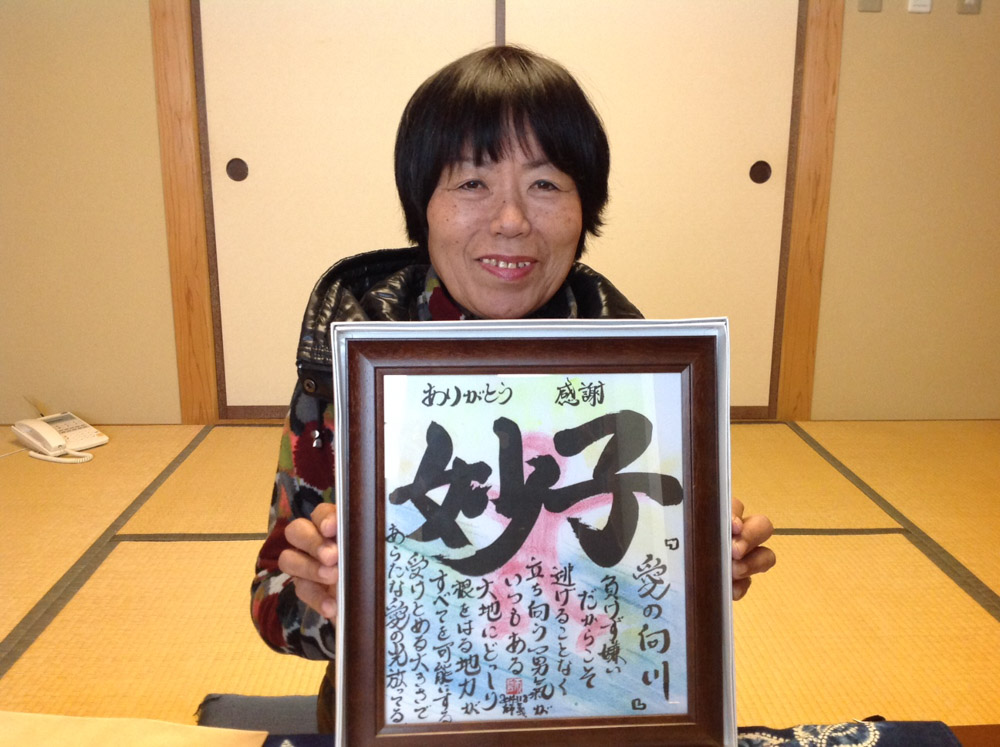 ありがとう 感謝
妙子
『愛の向川』
負けず嫌い
だからこそ
逃げることなく
立ち向う勇氣が
いつもある
大地にどっしり
根をはる地力が
すべてを可能にする
受けとめる大きさで
あらたな愛の光放ってる